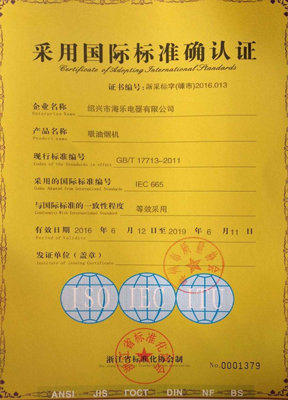 采用国际标准确认证
Certificate of Adopting International Standards
证书编号:浙采标字(嵊市)2016.013
企业名称 绍兴市海乐电器有限公司
产品名称 吸油烟机
现行标准编号 GB/T 17713-2011
采用的国际标准编号 IEC 665
与国际标准的一致性程度 等效采用
有效日期 2016 年 6 月 12 日至 2019 年 6 月 11 日
Period of Validity
发证单位(盖章)
ISO IEC ITU
浙江省标准化协会制
No.0001379
ANSI JIS TOCT DIN NF BS